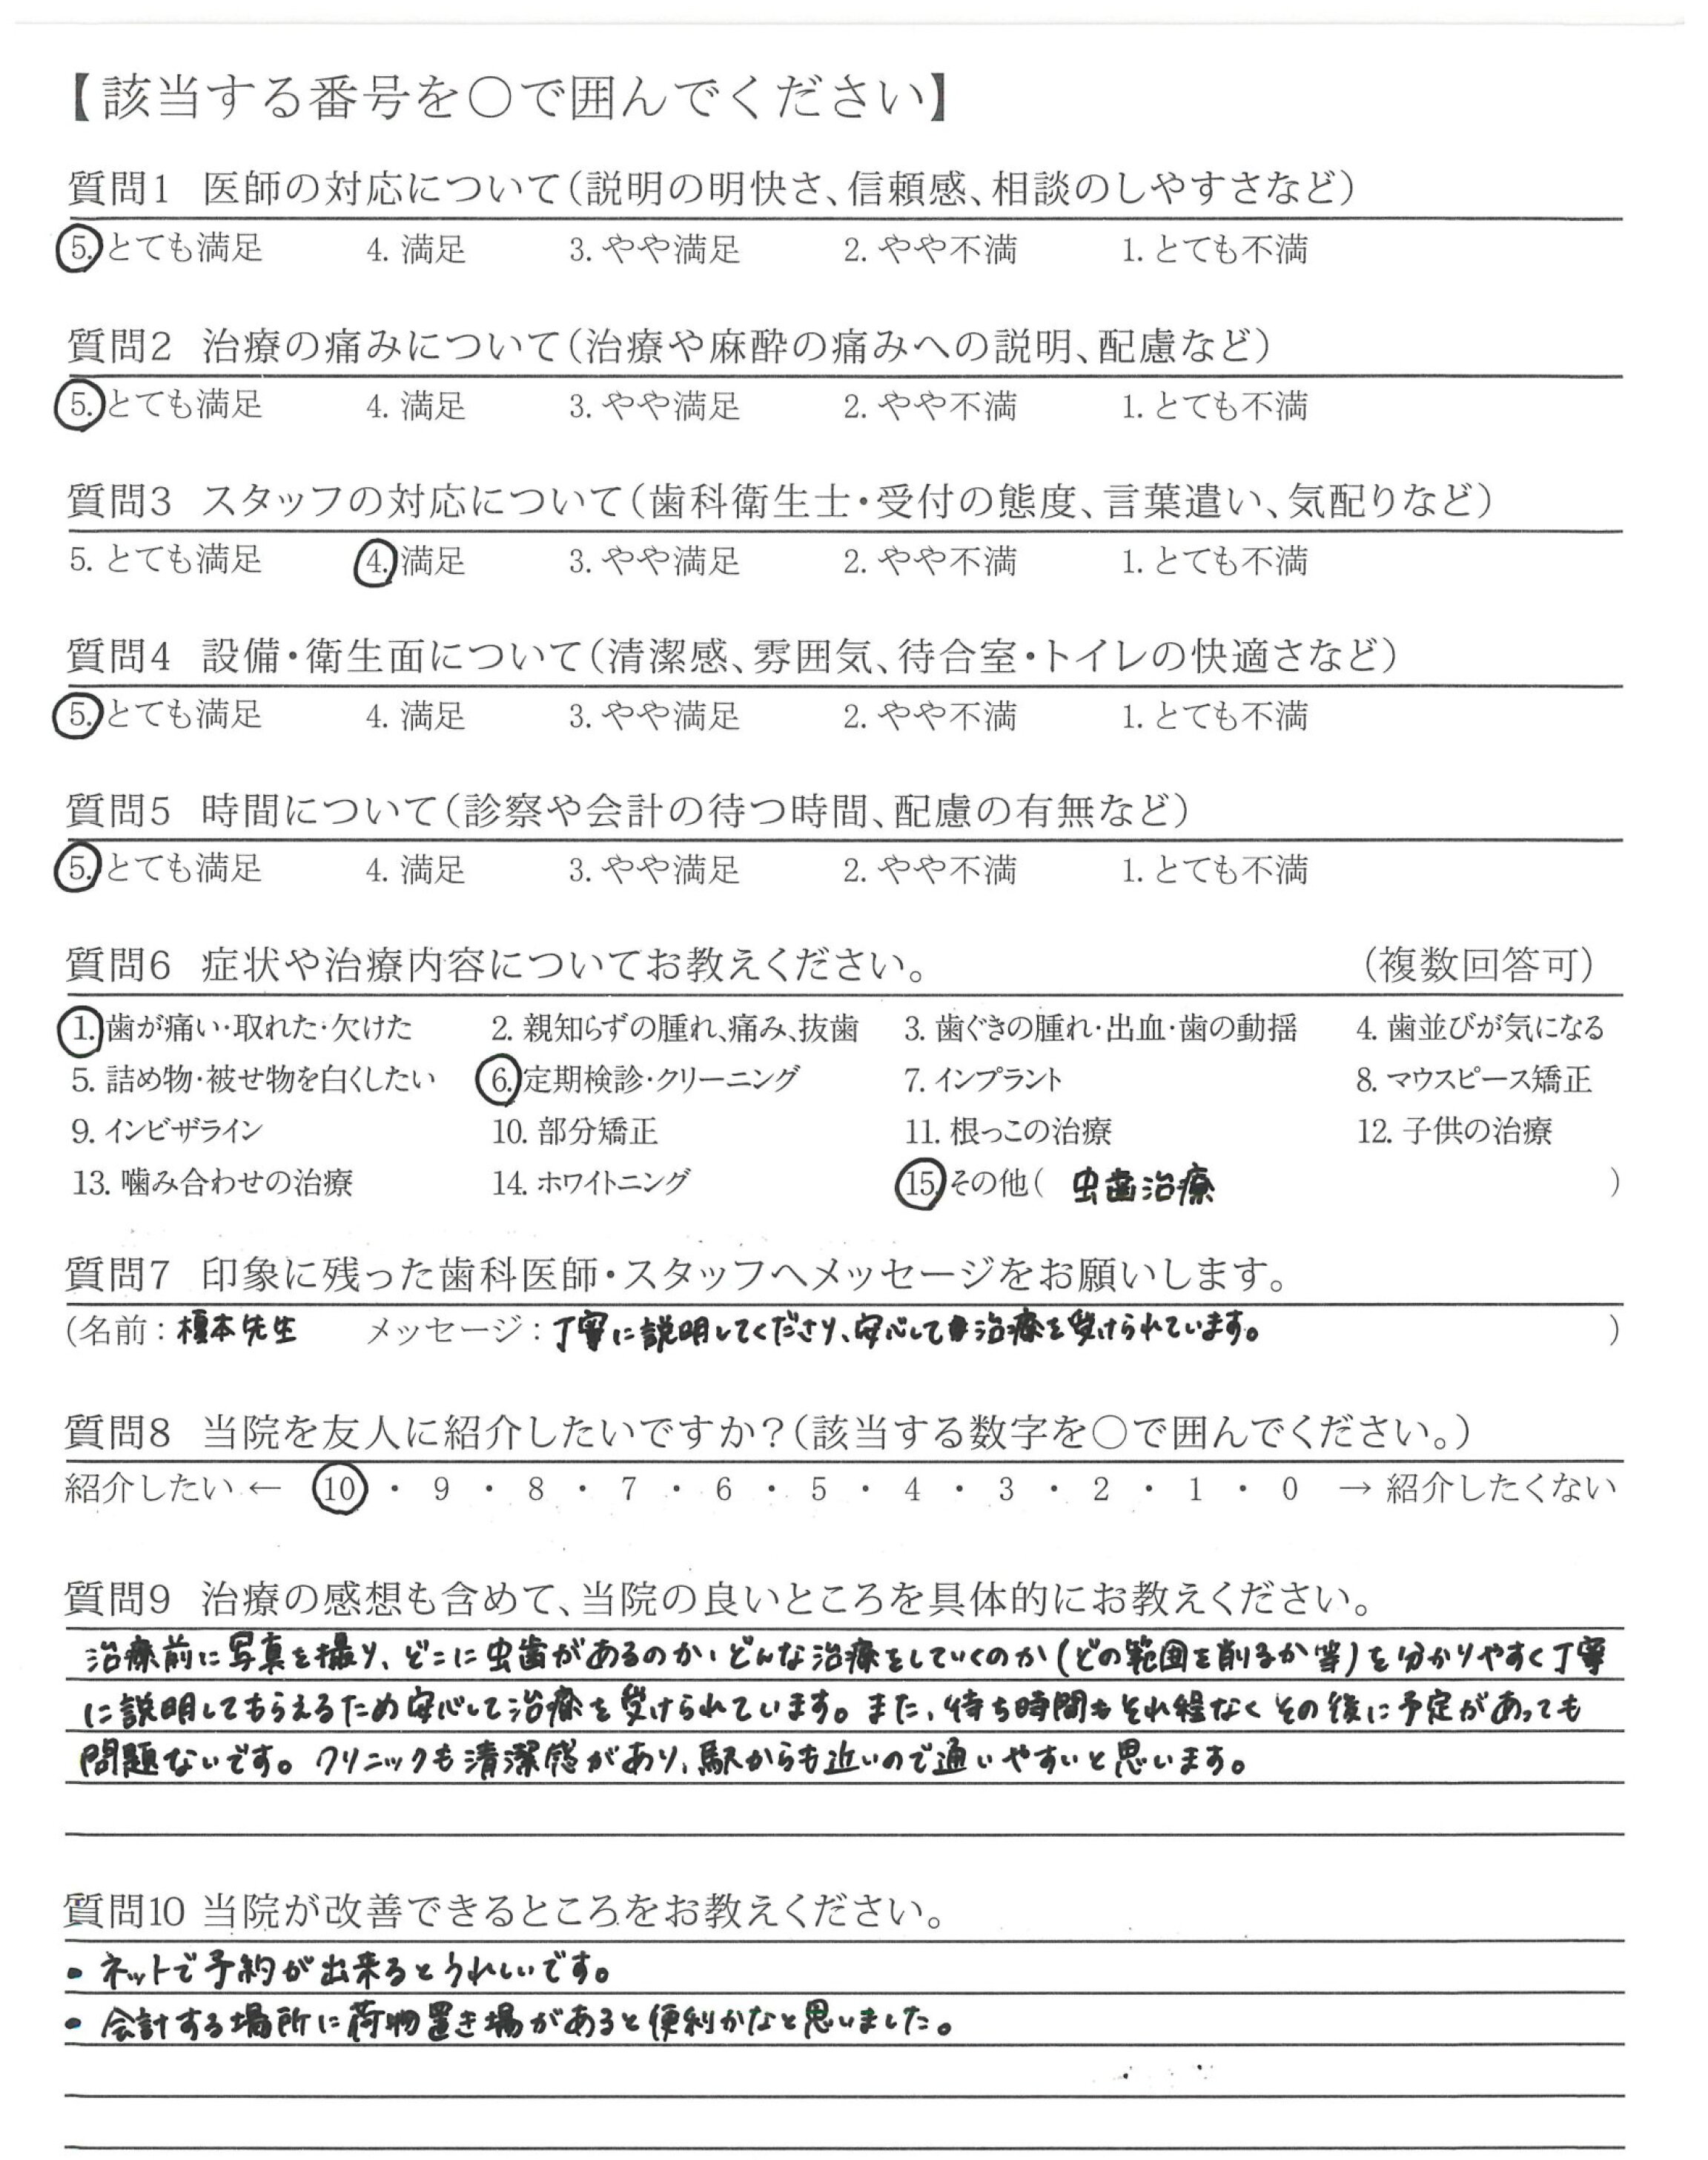 【該当する番号を○で囲んでください】
質問1 医師の対応について(説明の明快さ、信頼感、相談のしやすさなど)
5. とても満足 4. 満足 3. やや満足 2. やや不満 1. とても不満
質問2 治療の痛みについて(治療や麻酔の痛みへの説明、配慮など)
5. とても満足 4. 満足 3. やや満足 2. やや不満 1. とても不満
質問3 スタッフの対応について(歯科衛生士・受付の態度、言葉遣い、気配りなど)
5. とても満足 4. 満足 3. やや満足 2. やや不満 1. とても不満
質問4 設備・衛生面について(清潔感、雰囲気、待合室・トイレの快適さなど)
5. とても満足 4. 満足 3. やや満足 2. やや不満 1. とても不満
質問5 時間について(診察や会計の待つ時間、配慮の有無など)
5. とても満足 4. 満足 3. やや満足 2. やや不満 1. とても不満
質問6 症状や治療内容についてお教えください。 (複数回答可)
1. 歯が痛い・取れた・欠けた 2. 親知らずの腫れ、痛み、抜歯 3. 歯ぐきの腫れ・出血・歯の動揺 4. 歯並びが気になる
5. 詰め物・被せ物を白くしたい 6. 定期検診・クリーニング 7. インプラント 8. マウスピース矯正
9. インビザライン 10. 部分矯正 11. 根っこの治療 12. 子供の治療
13. 噛み合わせの治療 14. ホワイトニング 15. その他( 虫歯治療 )
質問7 印象に残った歯科医師・スタッフへメッセージをお願いします。
(名前：榎本先生 メッセージ：丁寧に説明してくださり、安心して治療を受けられています。 )
質問8 当院を友人に紹介したいですか？(該当する数字を○で囲んでください。)
紹介したい ← 10 ・ 9 ・ 8 ・ 7 ・ 6 ・ 5 ・ 4 ・ 3 ・ 2 ・ 1 ・ 0 → 紹介したくない
質問9 治療の感想も含めて、当院の良いところを具体的にお教えください。
治療前に写真を撮り、どこに虫歯があるのか、どんな治療をしていくのか(どの範囲を削るか等)を分かりやすく丁寧
に説明してもらえるため安心して治療を受けられています。また、待ち時間もそれ程なくその後に予定があっても
問題ないです。クリニックも清潔感があり、駅からも近いので通いやすいと思います。
質問10 当院が改善できるところをお教えください。
・ネットで予約が出来るとうれしいです。
・会計する場所に荷物置き場があると便利かなと思いました。